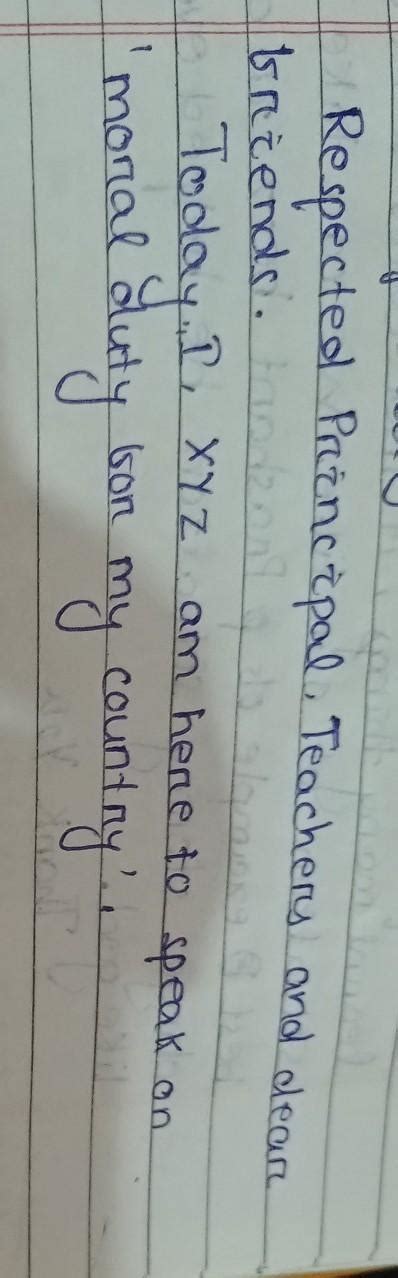 Respected Principal, Teachers and dear
friends.
Today, I, XYZ am here to speak on
'moral duty for my country',